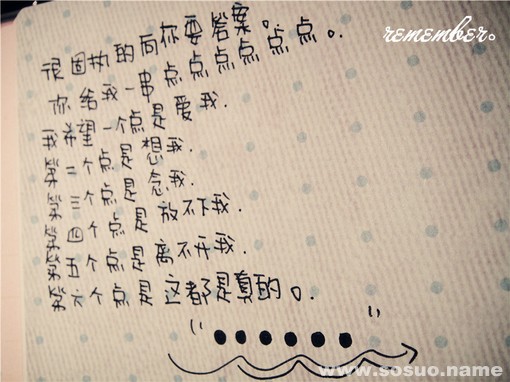 很固执的向你要答案。
你给我一串点点点点点点。
我希望一个点是爱我.
第二个点是想我.
第三个点是念我.
第四个点是放不下我.
第五个点是离不开我.
第六个点是这都是真的。.
“●●●●●●”
remember。
www.sosuo.name